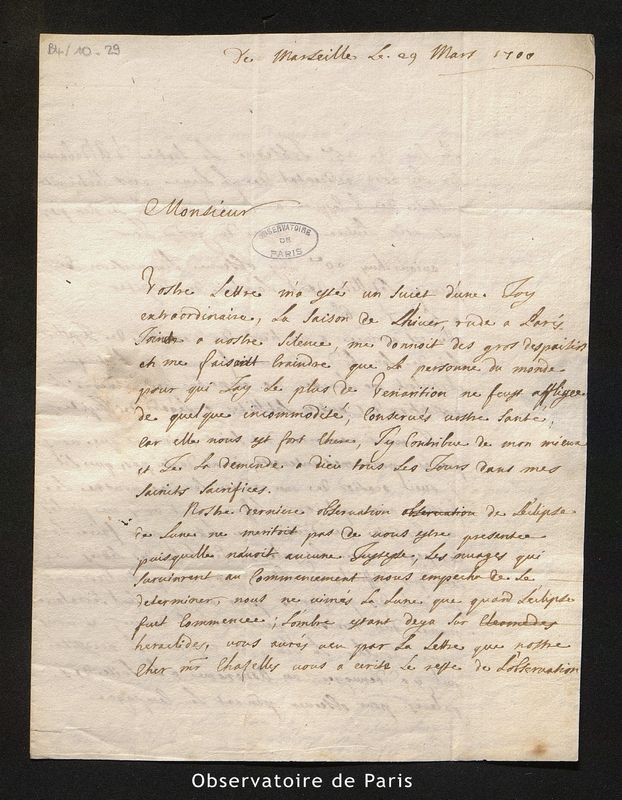 B4/10-29
De Marseille Le 29 Mars 1700
Monsieur
OBSERVATOIRE
DE
PARIS
Vostre Lettre m'a esté un suiet d'une Joy
extraordinaire, La saison de Lhiver, rude a Paris
Jointe a vostre silence, me donnoit des gros
et me faisoit Craindre que La personne du monde
pour qui Jay Le plus de Veneration ne feust affligee
de quelque incommodité, Conservés vostre santé,
car elle nous est fort Chere, J'y Contribue de mon mieux
et Je La demande a dieu tous Les Jours dans mes
saincts sacrifices.
Nostre derniere observation observation de L'eclipse
de Lune ne meritoit pas de vous estre presentee
puisquelle navoit aucune Justesse, Les nuages qui
survinrent au Commencement nous empecha de Le
determiner, nous ne vimes La Lune que quand L'eclipse
fut Commencee; Lombre estant deja sur Cleomedes
heraclides, vous aurés veu par La Lettre que nostre
Cher mr Chaselles vous a écrite Le reste de L'observation
Observatoire de Paris